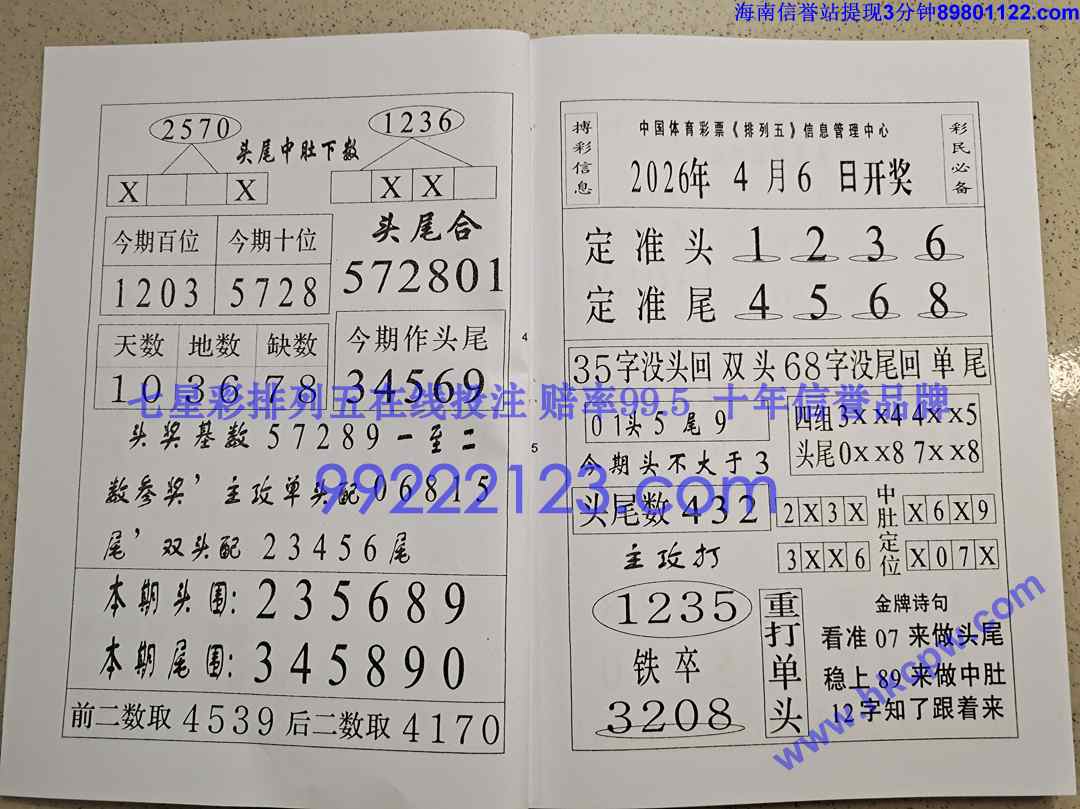 海南信誉站提现3分钟89801122.com
2570 1236
头尾中肚下数
X X
X X
今期百位 今期十位
1203 5728
头尾合
572801
天数 地数 缺数
10 36 78
今期作头尾
34569
头奖基数57289一至二
数参奖’主攻单头配06815
尾’双头配 23456尾
本期头围:235689
本期尾围:345890
前二数取4539后二数取4170
4
5
搏彩信息
中国体育彩票《排列五》信息管理中心
2026年 4月6日开奖
彩民必备
定准头 1 2 3 6
定准尾 4 5 6 8
35字没头回 双头68字没尾回 单尾
01头5 尾9
今期头不大于3
四组3xx4 4xx5
头尾0xx8 7xx8
头尾数432
主攻打
2X3X 中肚 X6X9
3XX6 定位 X07X
1235
铁卒
3208
重打单头
金牌诗句
看准07来做头尾
稳上89来做中肚
12字知了跟着来
七星彩排列五在线投注 赔率99.5 十年信誉品牌
99222123.com
www.hkcpw.com